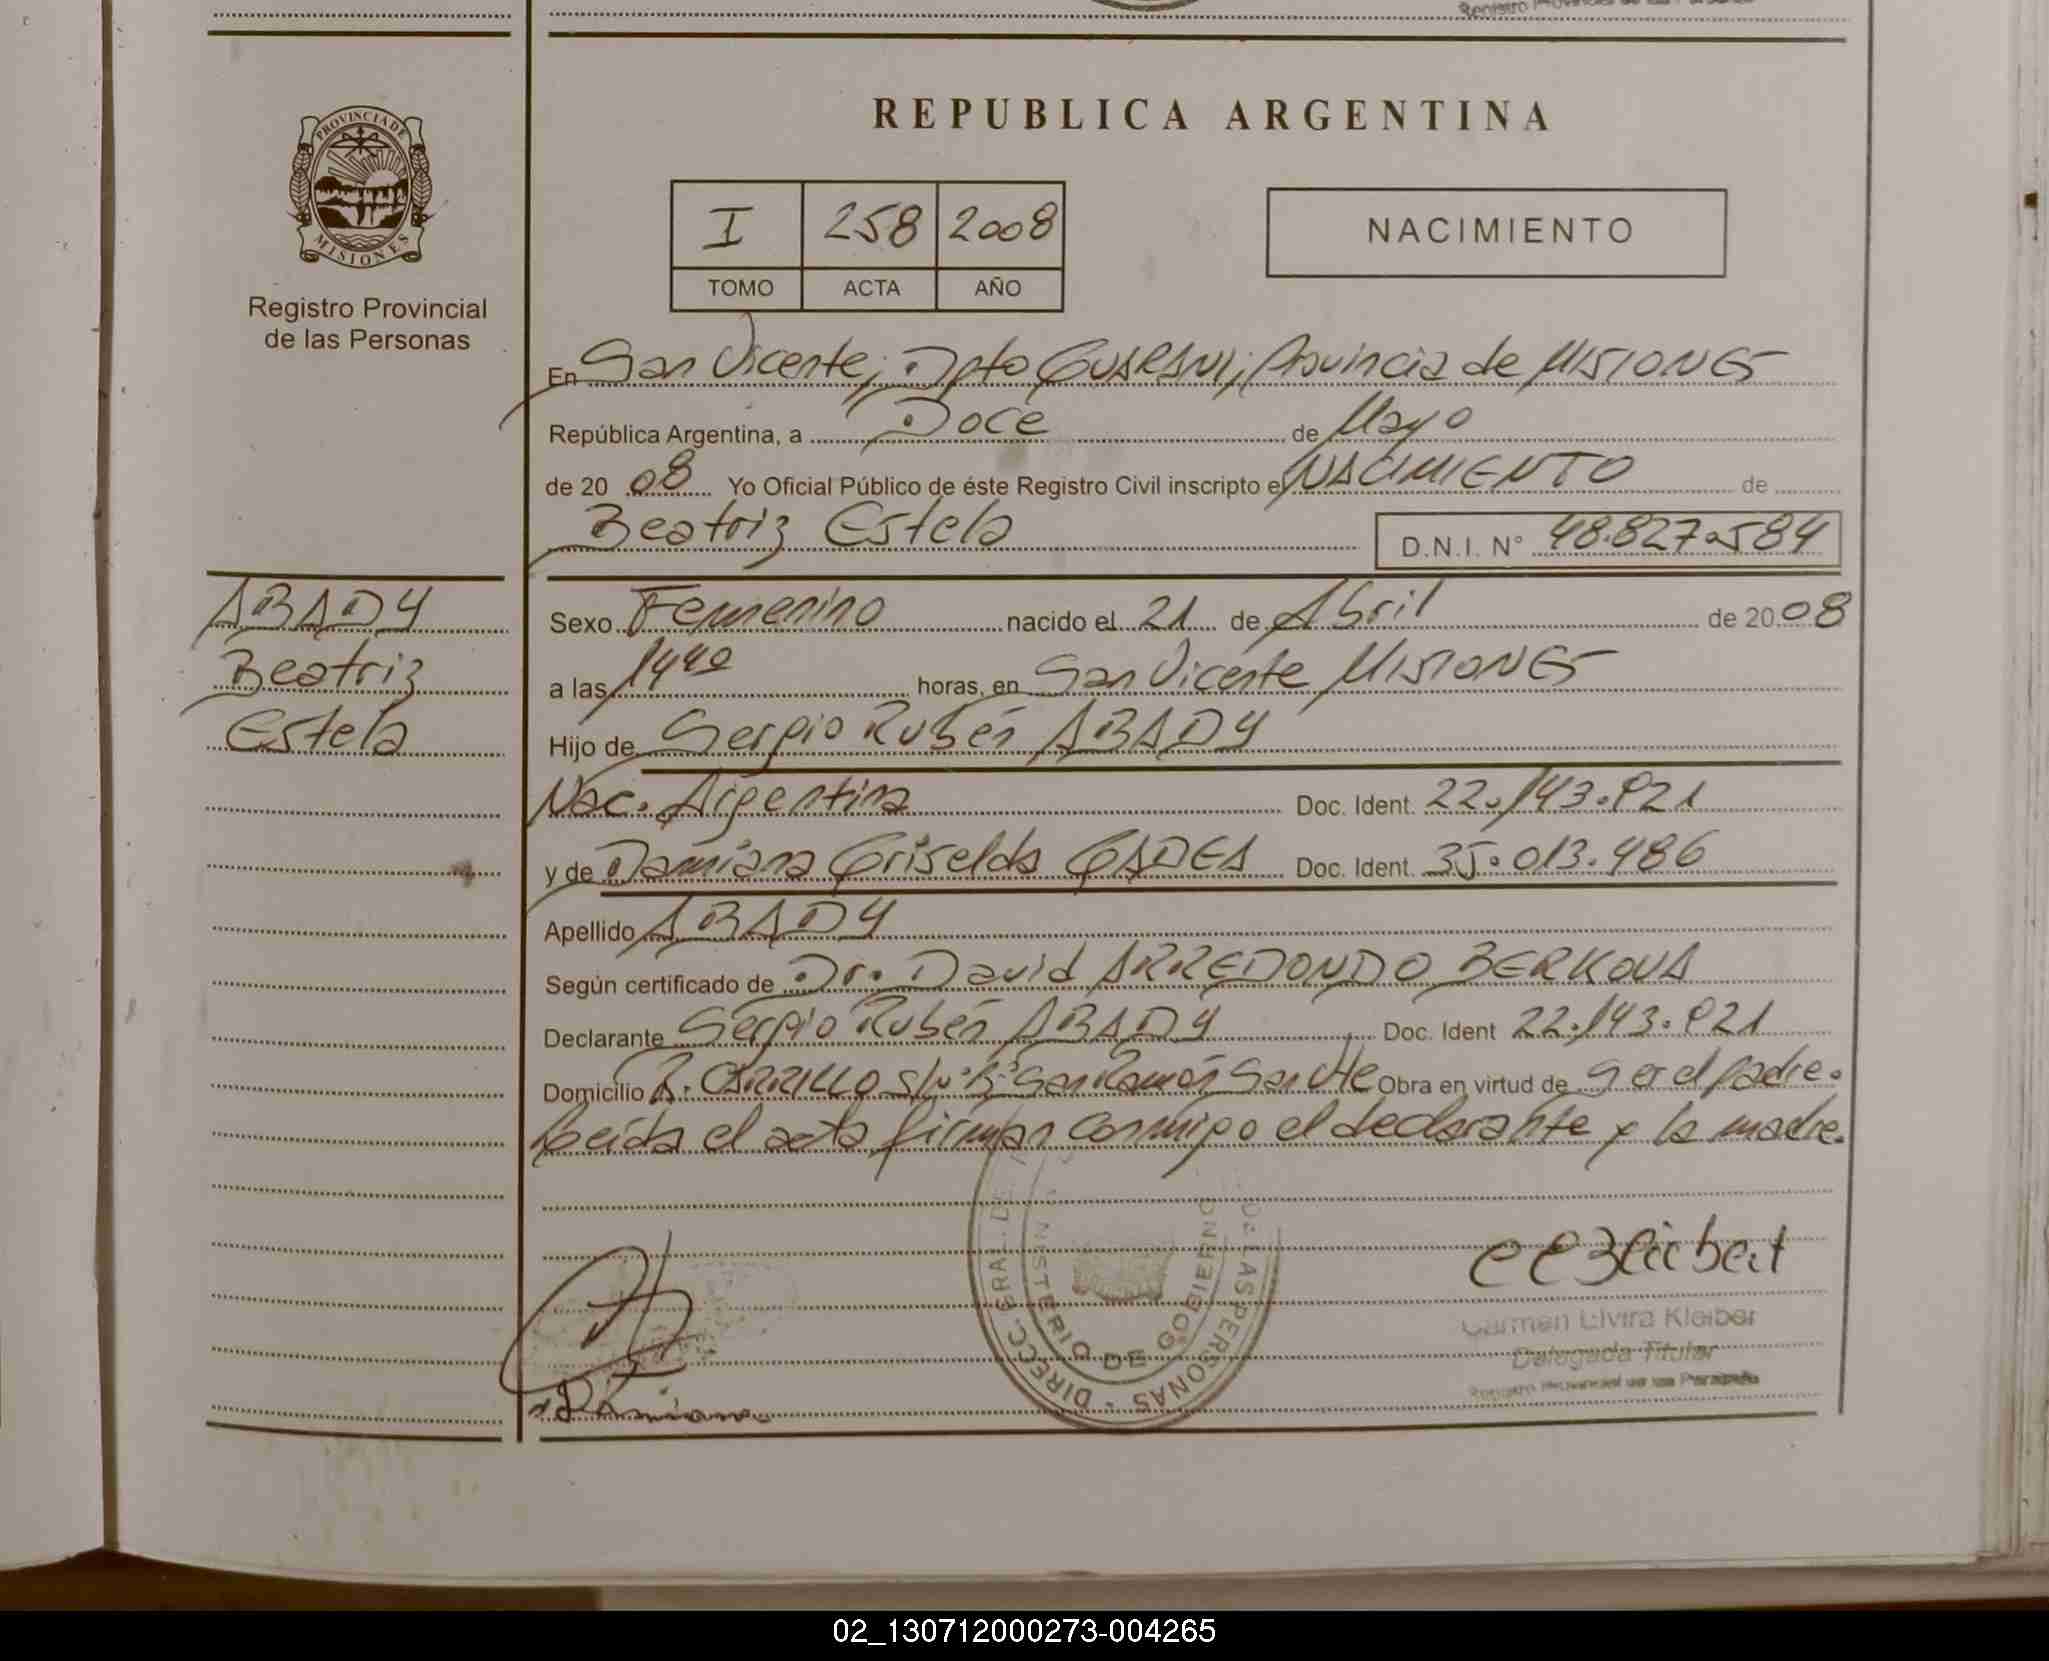 REPUBLICA ARGENTINA
PROVINCIA DE MISIONES
Registro Provincial
de las Personas
I 258 2008
TOMO ACTA AÑO
NACIMIENTO
En San Vicente; Dpto GUARANI; Provincia de MISIONES
República Argentina, a Doce de Mayo
de 20 08 Yo Oficial Público de éste Registro Civil inscripto el NACIMIENTO de
Beatriz Estela D.N.I. N° 48.827.584
ABADY
Beatriz
Estela
Sexo Femenino nacido el 21 de Abril de 20 08
a las 14 40 horas, en San Vicente MISIONES
Hijo de Sergio Rubén ABADY
Nac. Argentina Doc. Ident. 22.143.821
y de Damiana Griselda GADEA Doc. Ident. 35.013.486
Apellido ABADY
Según certificado de Dr. David ARREDONDO BERKOVA
Declarante Sergio Rubén ABADY Doc. Ident 22.143.821
Domicilio R. CARRILLO S/N° B° San Ramón San Vte Obra en virtud de ser el padre.
Leída el acta firman conmigo el declarante y la madre.
DIRECC. GRAL. DE LAS PERSONAS
MINISTERIO DE GOBIERNO
Carmen Elvira Kleiber
Delegada Titular
Registro Provincial de las Personas
Damiana
02_130712000273-004265